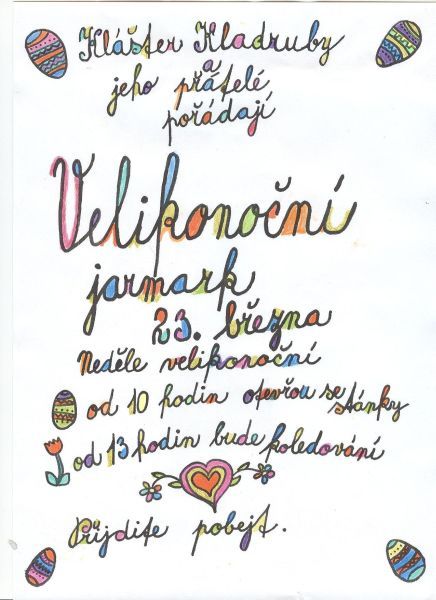 Klášter Kladruby
a
jeho přátelé
pořádají
Velikonoční
jarmark
23. března
Neděle velikonoční
od 10 hodin otevřou se stánky
od 13 hodin bude koledování
Přijdite pobejt.